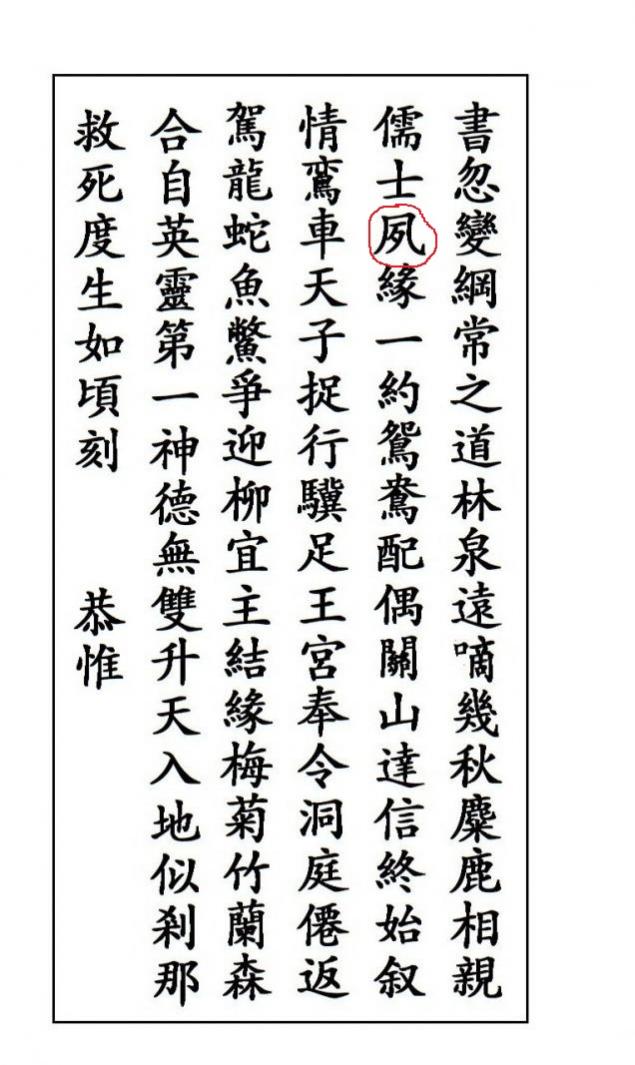 書忽變綱常之道林泉遠嘀幾秋麋鹿相親
儒士夙緣一約鴛鴦配偶關山達信終始叙
情鸞車天子捉行驥足王宮奉令洞庭僊返
駕龍蛇魚鱉爭迎柳宜主結緣梅菊竹蘭森
合自英靈第一神德無雙升天入地似剎那
救死度生如頃刻　恭惟